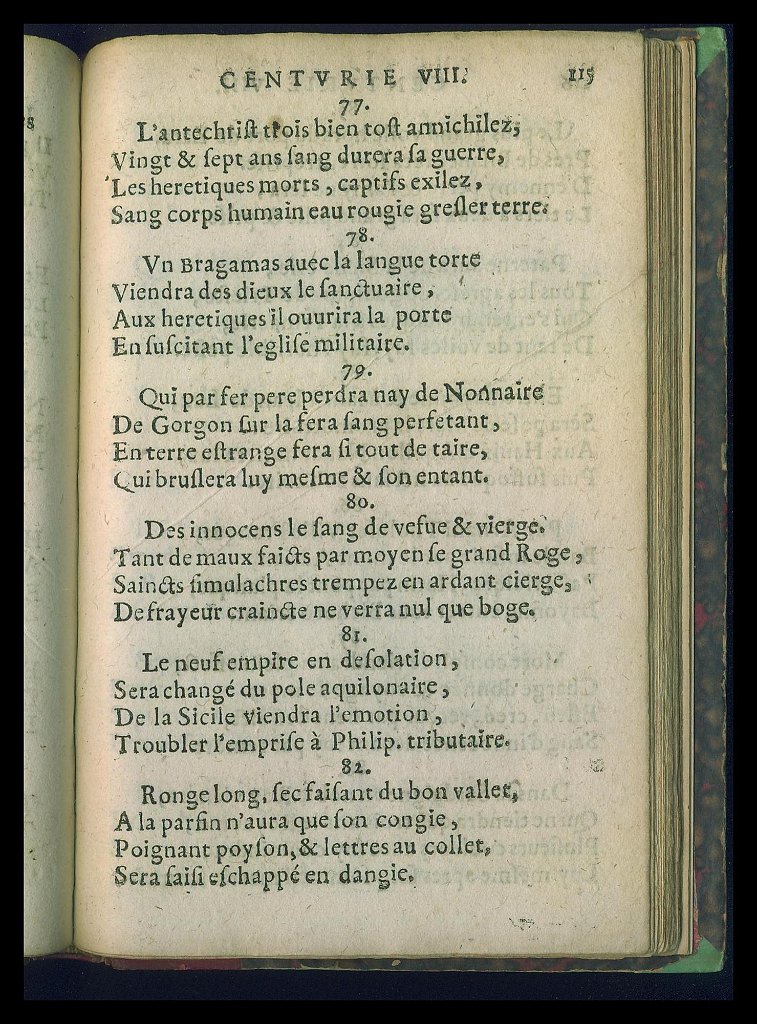 CENTVRIE VIII. 115
77.
L'antechriſt trois bien toſt annichilez,
Vingt & ſept ans ſang durera ſa guerre,
Les heretiques morts, captifs exilez,
Sang corps humain eau rougie greſler terre.
78.
Vn Bragamas auec la langue torte
Viendra des dieux le ſanctuaire,
Aux heretiques il ouurira la porte
En ſuſcitant l'egliſe militaire.
79.
Qui par fer pere perdra nay de Nonnaire
De Gorgon ſur la ſera ſang perfetant,
En terre eſtrange fera ſi tout de taire,
Qui bruſlera luy meſme & ſon entant.
80.
Des innocens le ſang de vefue & vierge.
Tant de maux faicts par moyen ſe grand Roge,
Saincts ſimulachres trempez en ardant cierge,
De frayeur craincte ne verra nul que boge.
81.
Le neuf empire en deſolation,
Sera changé du pole aquilonaire,
De la Sicile viendra l'emotion,
Troubler l'empriſe à Philip. tributaire.
82.
Ronge long, ſec faiſant du bon vallet,
A la parfin n'aura que ſon congie,
Poignant poyſon, & lettres au collet,
Sera ſaiſi eſchappé en dangie.